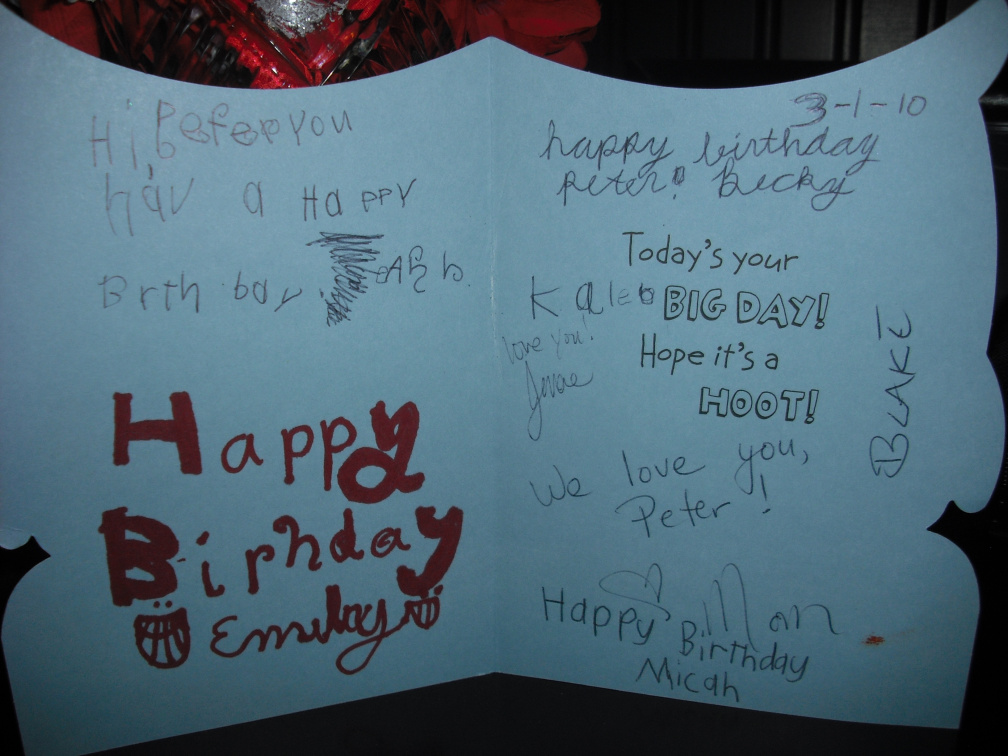 Hi, Peter you
hav a Happy
Brth day
Happy
Birhday
Emily
3-1-10
happy birthday
Peter! Becky
Today's your
Kaleb BIG DAY!
love you! Hope it's a
Jenae HOOT!
BLAKE
We love you,
Peter!
Mom
Happy Birthday
Micah